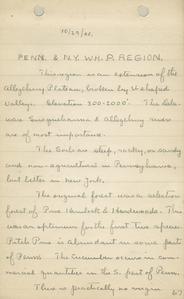 10/29/41.
PENN. & N.Y. WH. P. REGION.
This region is an extension of the
Allegheny Plateau, broken by V shaped
valleys. Elevation 300-2000'. The Dela-
ware Susquehanna & Allegheny rivers
are of most importance.
The soils are steep, rocky, or sandy
and non-agricultural in Pennsylvania,
but better in New York.
The original forest was a selection
forest of Pine Hemlock & Hardwoods. This
was an optimum for the first two species.
Pitch Pine is abundant in some part
of Penna. The Cucumber occurs in com-
mercial quantities in the S. part of Penna.
There is practically no virgin